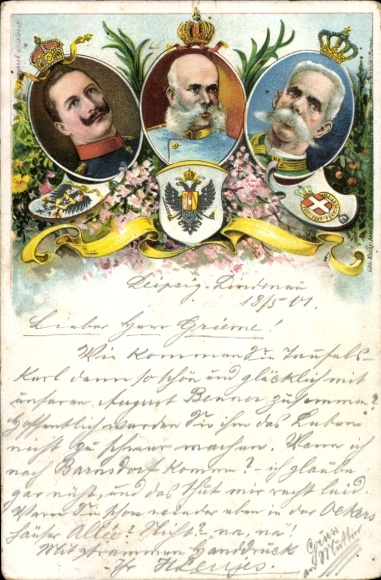 Leipzig-Lindenau
18/5 01.
Lieber Herr Grieme!
Wie kommen Sie Teufels-
Karl denn so schön und glücklich mit
unserem August Benner zusammen?
Hoffentlich werden Sie ihm das Leben
nicht zu schwer machen. Wann ich
nach Barnsdorf komme? - ich glaube
gar nicht, und das thut mir recht leid.
Waren Sie schon wieder oben in der Ockers
häuser Allée? Nicht? na, na!
Mit strammem Handdruck
Ihr
Gruss
an Mutter